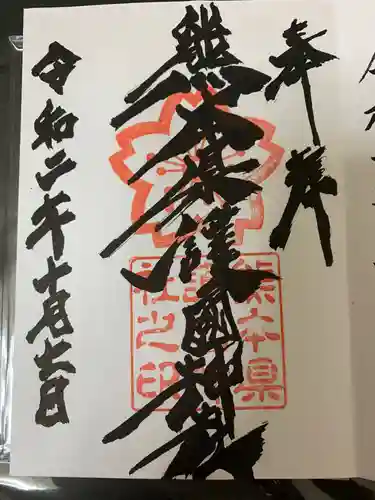 奉拝
熊本県護國神社
熊本県
護國神
社之印
令和二年十月七日